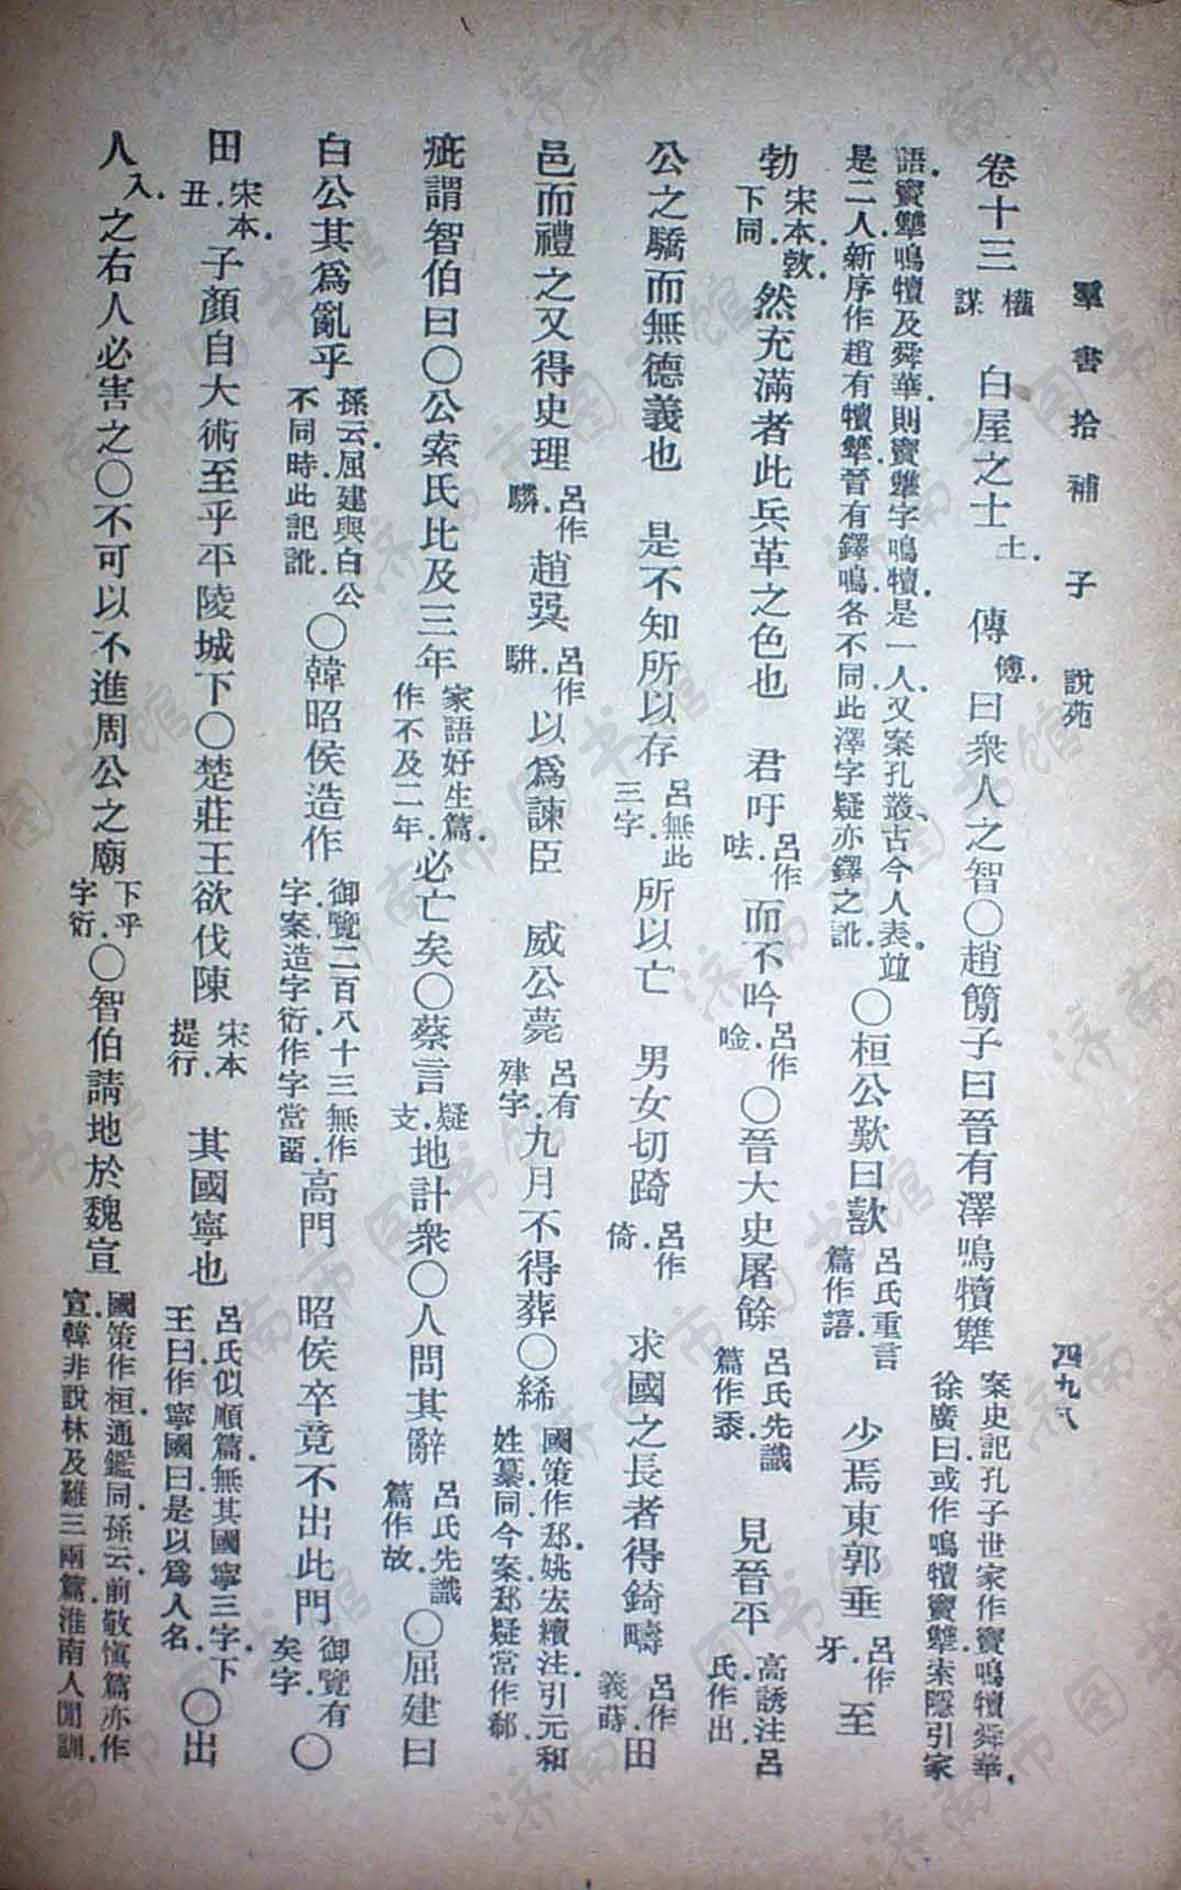 羣書拾補 子 說苑 四九八
卷十三 權謀 白屋之士 土. 傳 傅. 曰衆人之智〇趙簡子曰晉有澤鳴犢犨 案史記孔子世家作竇鳴犢舜華.徐廣曰.或作鳴犢竇犨.索隱引家
語.竇犨鳴犢及舜華.則竇犨字鳴犢.是一人.又案孔叢.古今人表.竝是二人.新序作趙有犢犨.晉有鐸鳴.各不同.此澤字疑亦鐸之訛. 〇桓公歎曰歖 呂氏重言篇作譆. 少焉東郭垂 呂作牙. 至
勃 宋本.敦.下同. 然充滿者此兵革之色也 君吁 呂作呿. 而不吟 呂作唫. 〇晉大史屠餘 呂氏先識篇作黍. 見晉平 高誘注呂氏作出.
公之驕而無德義也 是不知所以存 呂無此三字. 所以亡 男女切踦 呂作倚. 求國之長者得錡疇 呂作義蒔. 田
邑而禮之又得史理 呂作驎. 趙巽 呂作駢. 以爲諫臣 威公薨 呂有殔字. 九月不得葬〇絺 國策作郄.姚宏續注.引元和姓纂同.今案.郄疑當作郗.
疵謂智伯曰〇公索氏比及三年 家語好生篇.作不及二年. 必亡矣〇蔡言 疑支. 地計衆〇人問其辭 呂氏先識篇作故. 〇屈建曰
白公其爲亂乎 孫云.屈建與白公不同時.此記訛. 〇韓昭侯造作 御覽二百八十三無作字.案造字衍.作字當畱. 高門 昭侯卒竟不出此門 御覽有矣字. 〇
田 宋本.丑. 子顏自大術至乎平陵城下〇楚莊王欲伐陳 宋本提行. 其國寧也 呂氏似順篇.無其國寧三字.下王曰作寧國曰.是以爲人名. 〇出
人 入. 之右人必害之〇不可以不進周公之廟 下乎字衍. 〇智伯請地於魏宣 國策作桓.通鑑同.孫云.前敬愼篇亦作宣.韓非說林及難三兩篇.淮南人閒訓.